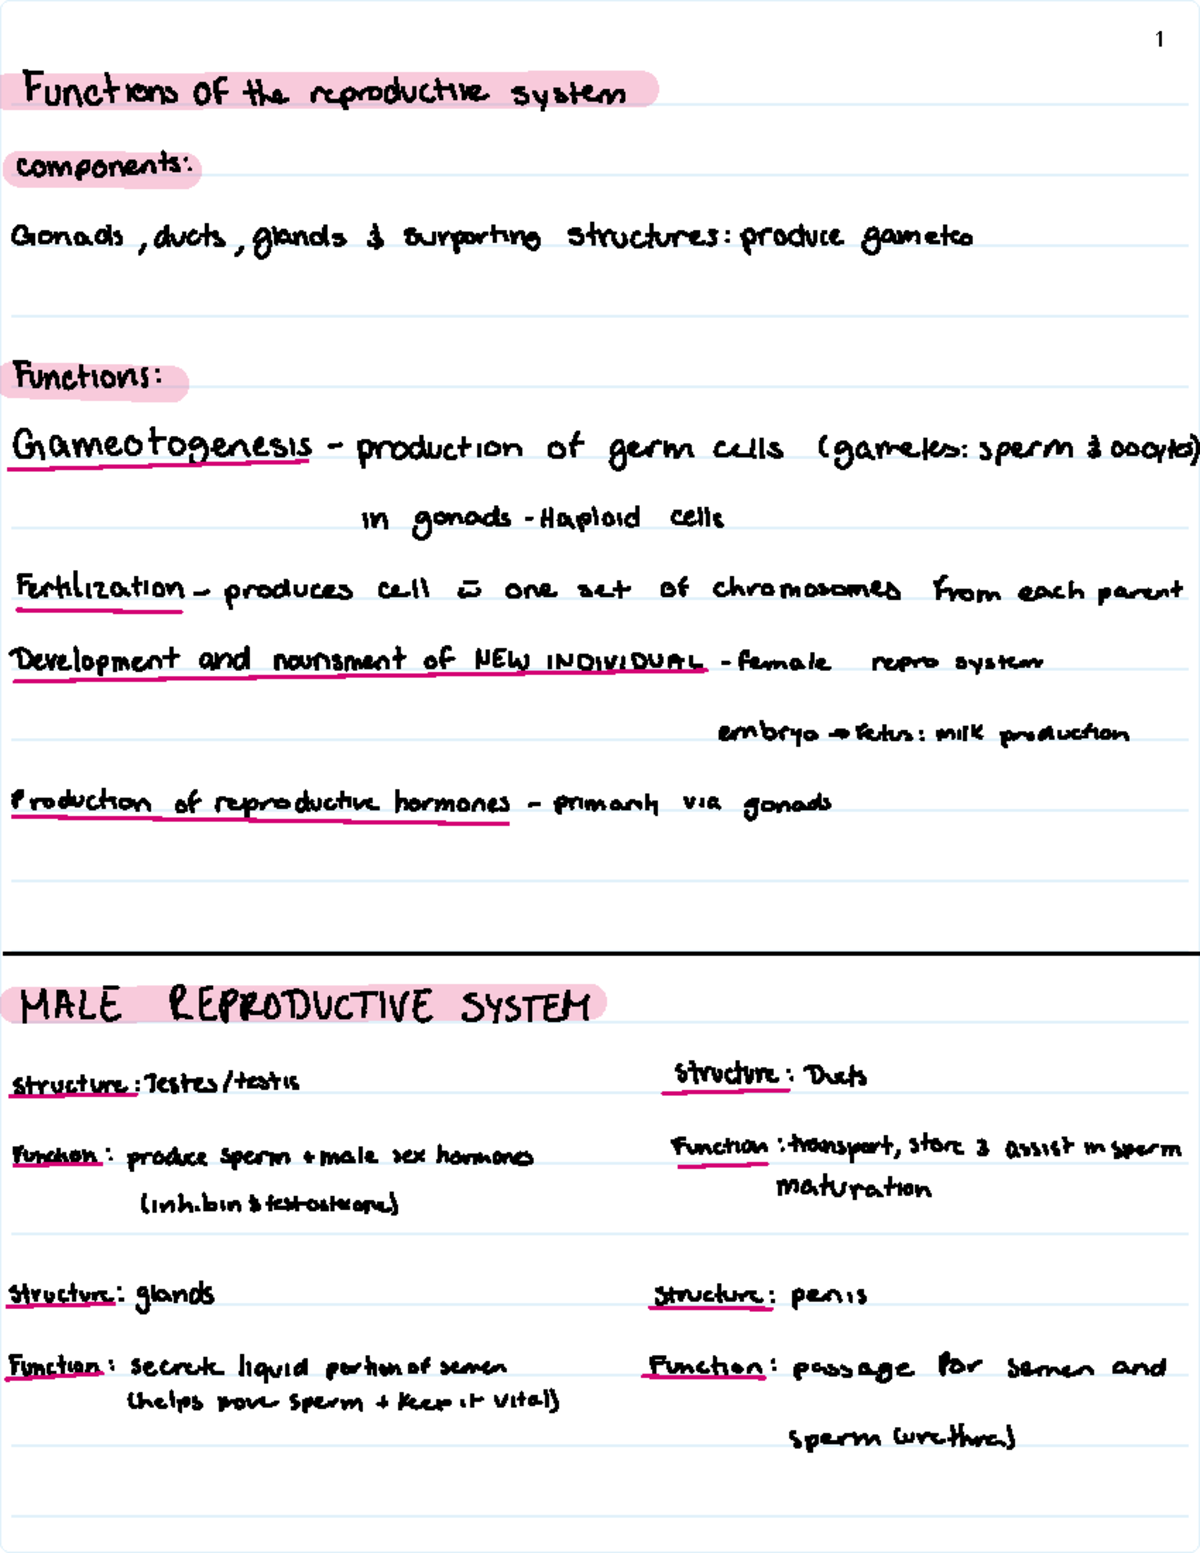 1
Functions of the reproductive system
components:
Gonads, ducts, glands & surporting structures: produce gametes
Functions:
Gameotogenesis - production of germ cells (gametes: sperm & oocytes)
in gonads - Haploid cells
Fertilization - produces cell c̄ one set of chromosomes from each parent
Development and nourisment of NEW INDIVIDUAL - female repro system
embryo → fetus: milk production
Production of reproductive hormones - primarily via gonads
MALE REPRODUCTIVE SYSTEM
structure: Testes/testis
Function: produce sperm + male sex hormones
(inhibin & testosterone)
structure: Ducts
Function: transport, store & assist in sperm
maturation
structure: glands
Function: secrete liquid portion of semen
(helps move sperm + keep it vital)
structure: penis
Function: passage for semen and
sperm (urethra)